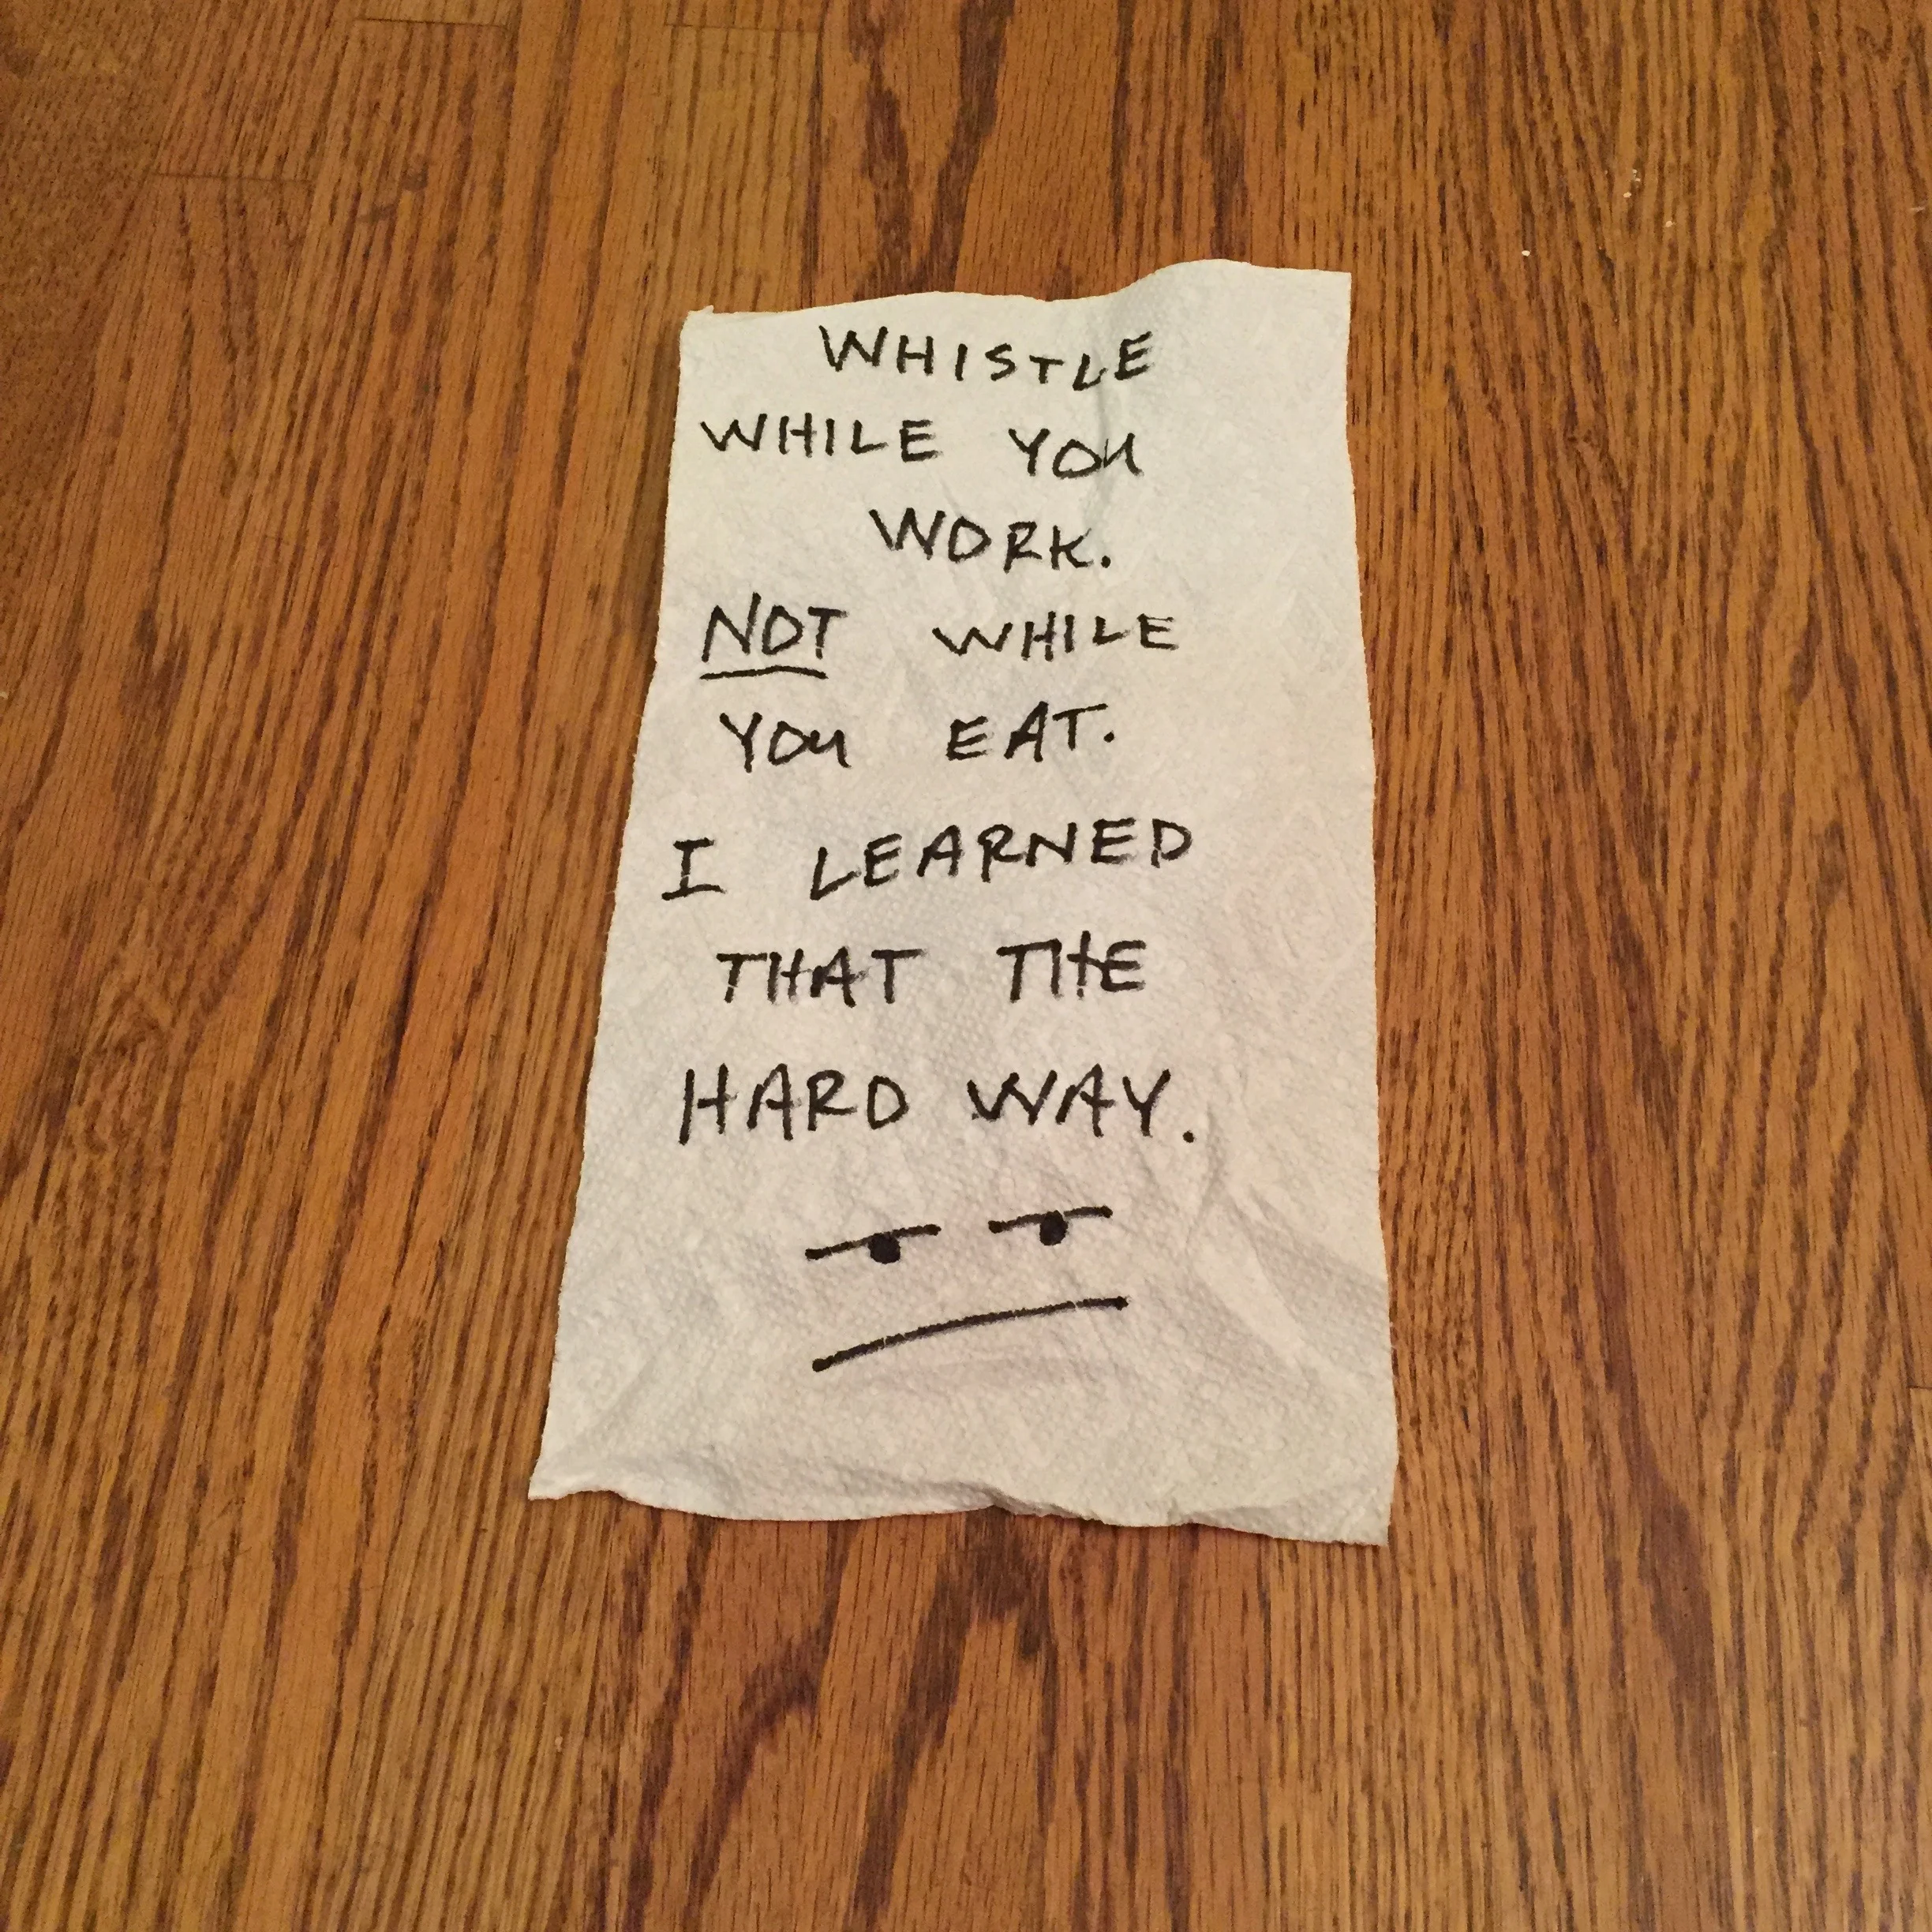 WHISTLE
WHILE YOU
WORK.
NOT WHILE
YOU EAT.
I LEARNED
THAT THE
HARD WAY.